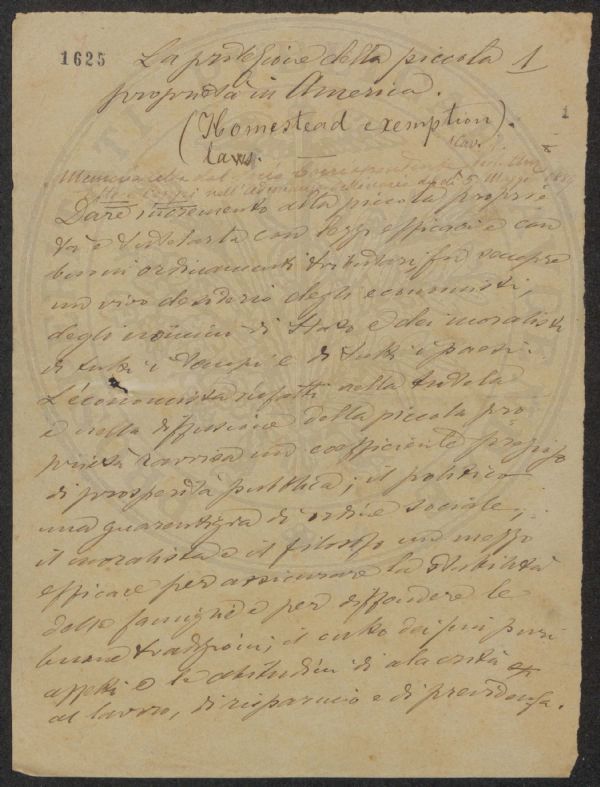 1625
La protezione della piccola 1
proprietà in America.
1
(Homestead exemption
laws.
Cav.
Memoria del Socio Corrispondente
nell'adunanza di 5 Maggio
Dare incremento alla piccola proprie
tà e tutelarla con leggi efficaci e con
buoni ordinamenti tributari fu sempre
un vivo desiderio degli economisti,
degli uomini di Stato e dei moralisti
di tutti i tempi e di tutti i paesi.
L'economista infatti nella tutela
e nella diffusione della piccola pro
prietà ravvisa un coefficiente
di prosperità pubblica; il politico
una guarentigia di ordine sociale,
il moralista e il filosofo un mezzo
efficace per assicurare la stabilità
delle famiglie e per diffondere le
buone tradizioni; il culto dei più puri
affetti e le abitudini di alacrità
al lavoro, di risparmio e di previdenza.